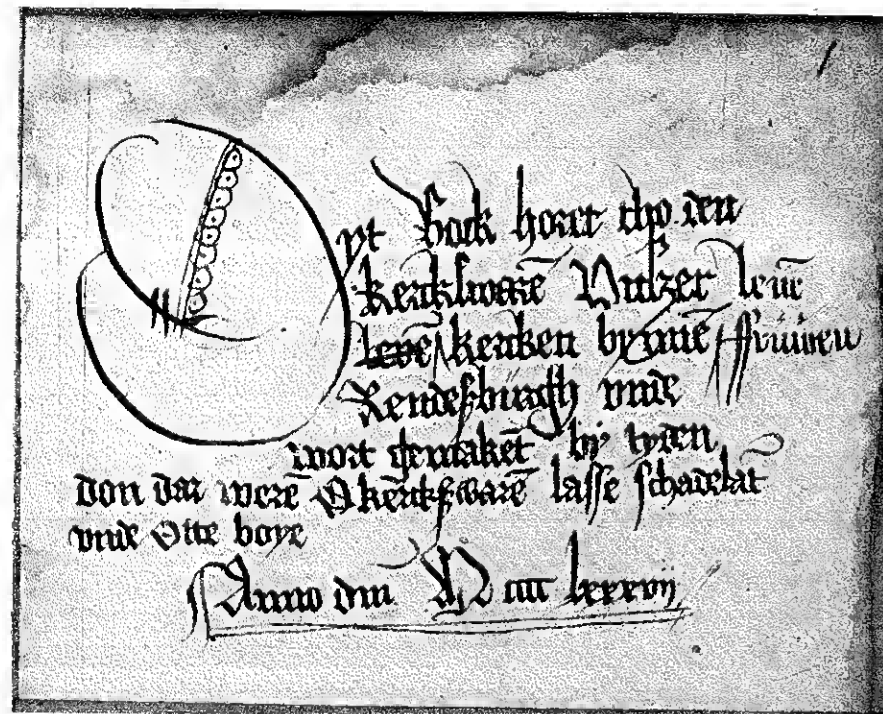 Dyt Bock horet tho den
kerkswarē Vnszer leuē
levē kerken bynnē ffruwen
Rendeszburgh vnde
wort gemaket by tyden
don dar werē kerkswarē lasse schadelāt
vnde Otte boye
Anno dm̄ M cccc lxxxvij